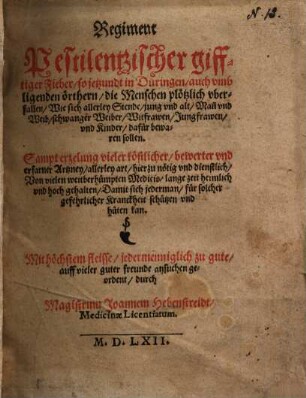 N. 12.
Regiment
Pestilentzischer giff-
tiger Fieber/ so jetzundt in Düringen/ auch vmb
ligenden örthern/ die Menschen plötzlich vber-
fallen/ Wie sich allerley Stende/ jung vnd alt/ Mañ vnd
Weib/ schwanger Weiber/ Weifrawen/ Jungfrawen/
vnd Kinder/ dafür bewa-
ren sollen.
Sampt erzelung vieler köstlicher/ bewerter vnd
erfarner Artzney/ allerley art/ hierzu nötig vnd dienstlich/
Von vielen weitberhümpten Medicis/ lange zeit heimlich
vnd hoch gehalten/ Damit sich jederman/ für solcher
gefehrlicher Kranckheit schützen vnd
hüten kan.
Mit höchstem fleisse/ jedermenniglich zu gute/
auff vieler guter freunde ansuchen ge-
ordent/ durch
Magistrum Joannem Hebenstreidt/
Medicinæ Licentiatum.
M. D. LXII.